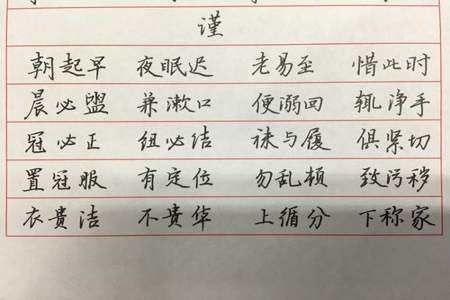 谨
朝起早 夜眠迟 老易至 惜此时
晨必盥 兼漱口 便溺回 辄净手
冠必正 纽必结 袜与履 俱紧切
置冠服 有定位 勿乱顿 致污秽
衣貴洁 不貴华 上循分 下称家